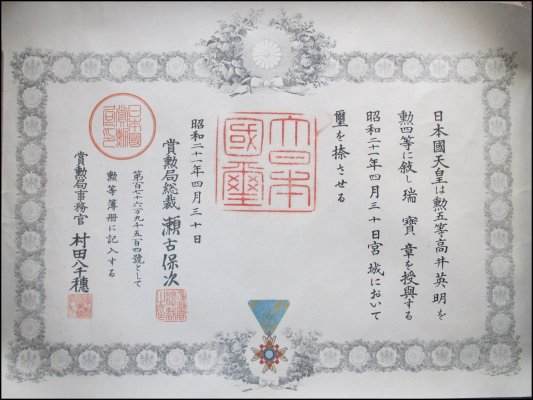 日本國天皇は勲五等高井英明を
勲四等に敍し瑞寶章を授與する
昭和二十一年四月三十日宮城において
璽を捺させる
大日本
國璽
昭和二十一年四月三十日
賞勲局総裁 瀬古保次
第百七十六万九千五百四號として
勲等簿册に記入する
賞勲局事務官 村田八千穗